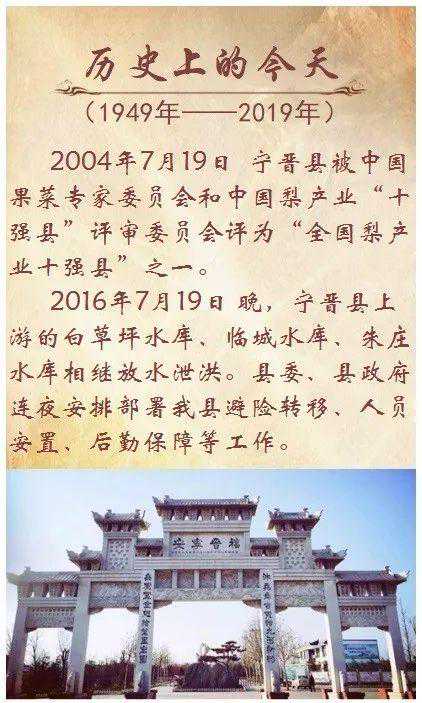 历史上的今天
（1949年——2019年）
2004年7月19日 宁晋县被中国
果菜专家委员会和中国梨产业“十
强县”评审委员会评为“全国梨产
业十强县”之一。
2016年7月19日晚，宁晋县上
游的白草坪水库、临城水库、朱庄
水库相继放水泄洪。县委、县政府
连夜安排部署我县避险转移、人员
安置、后勤保障等工作。